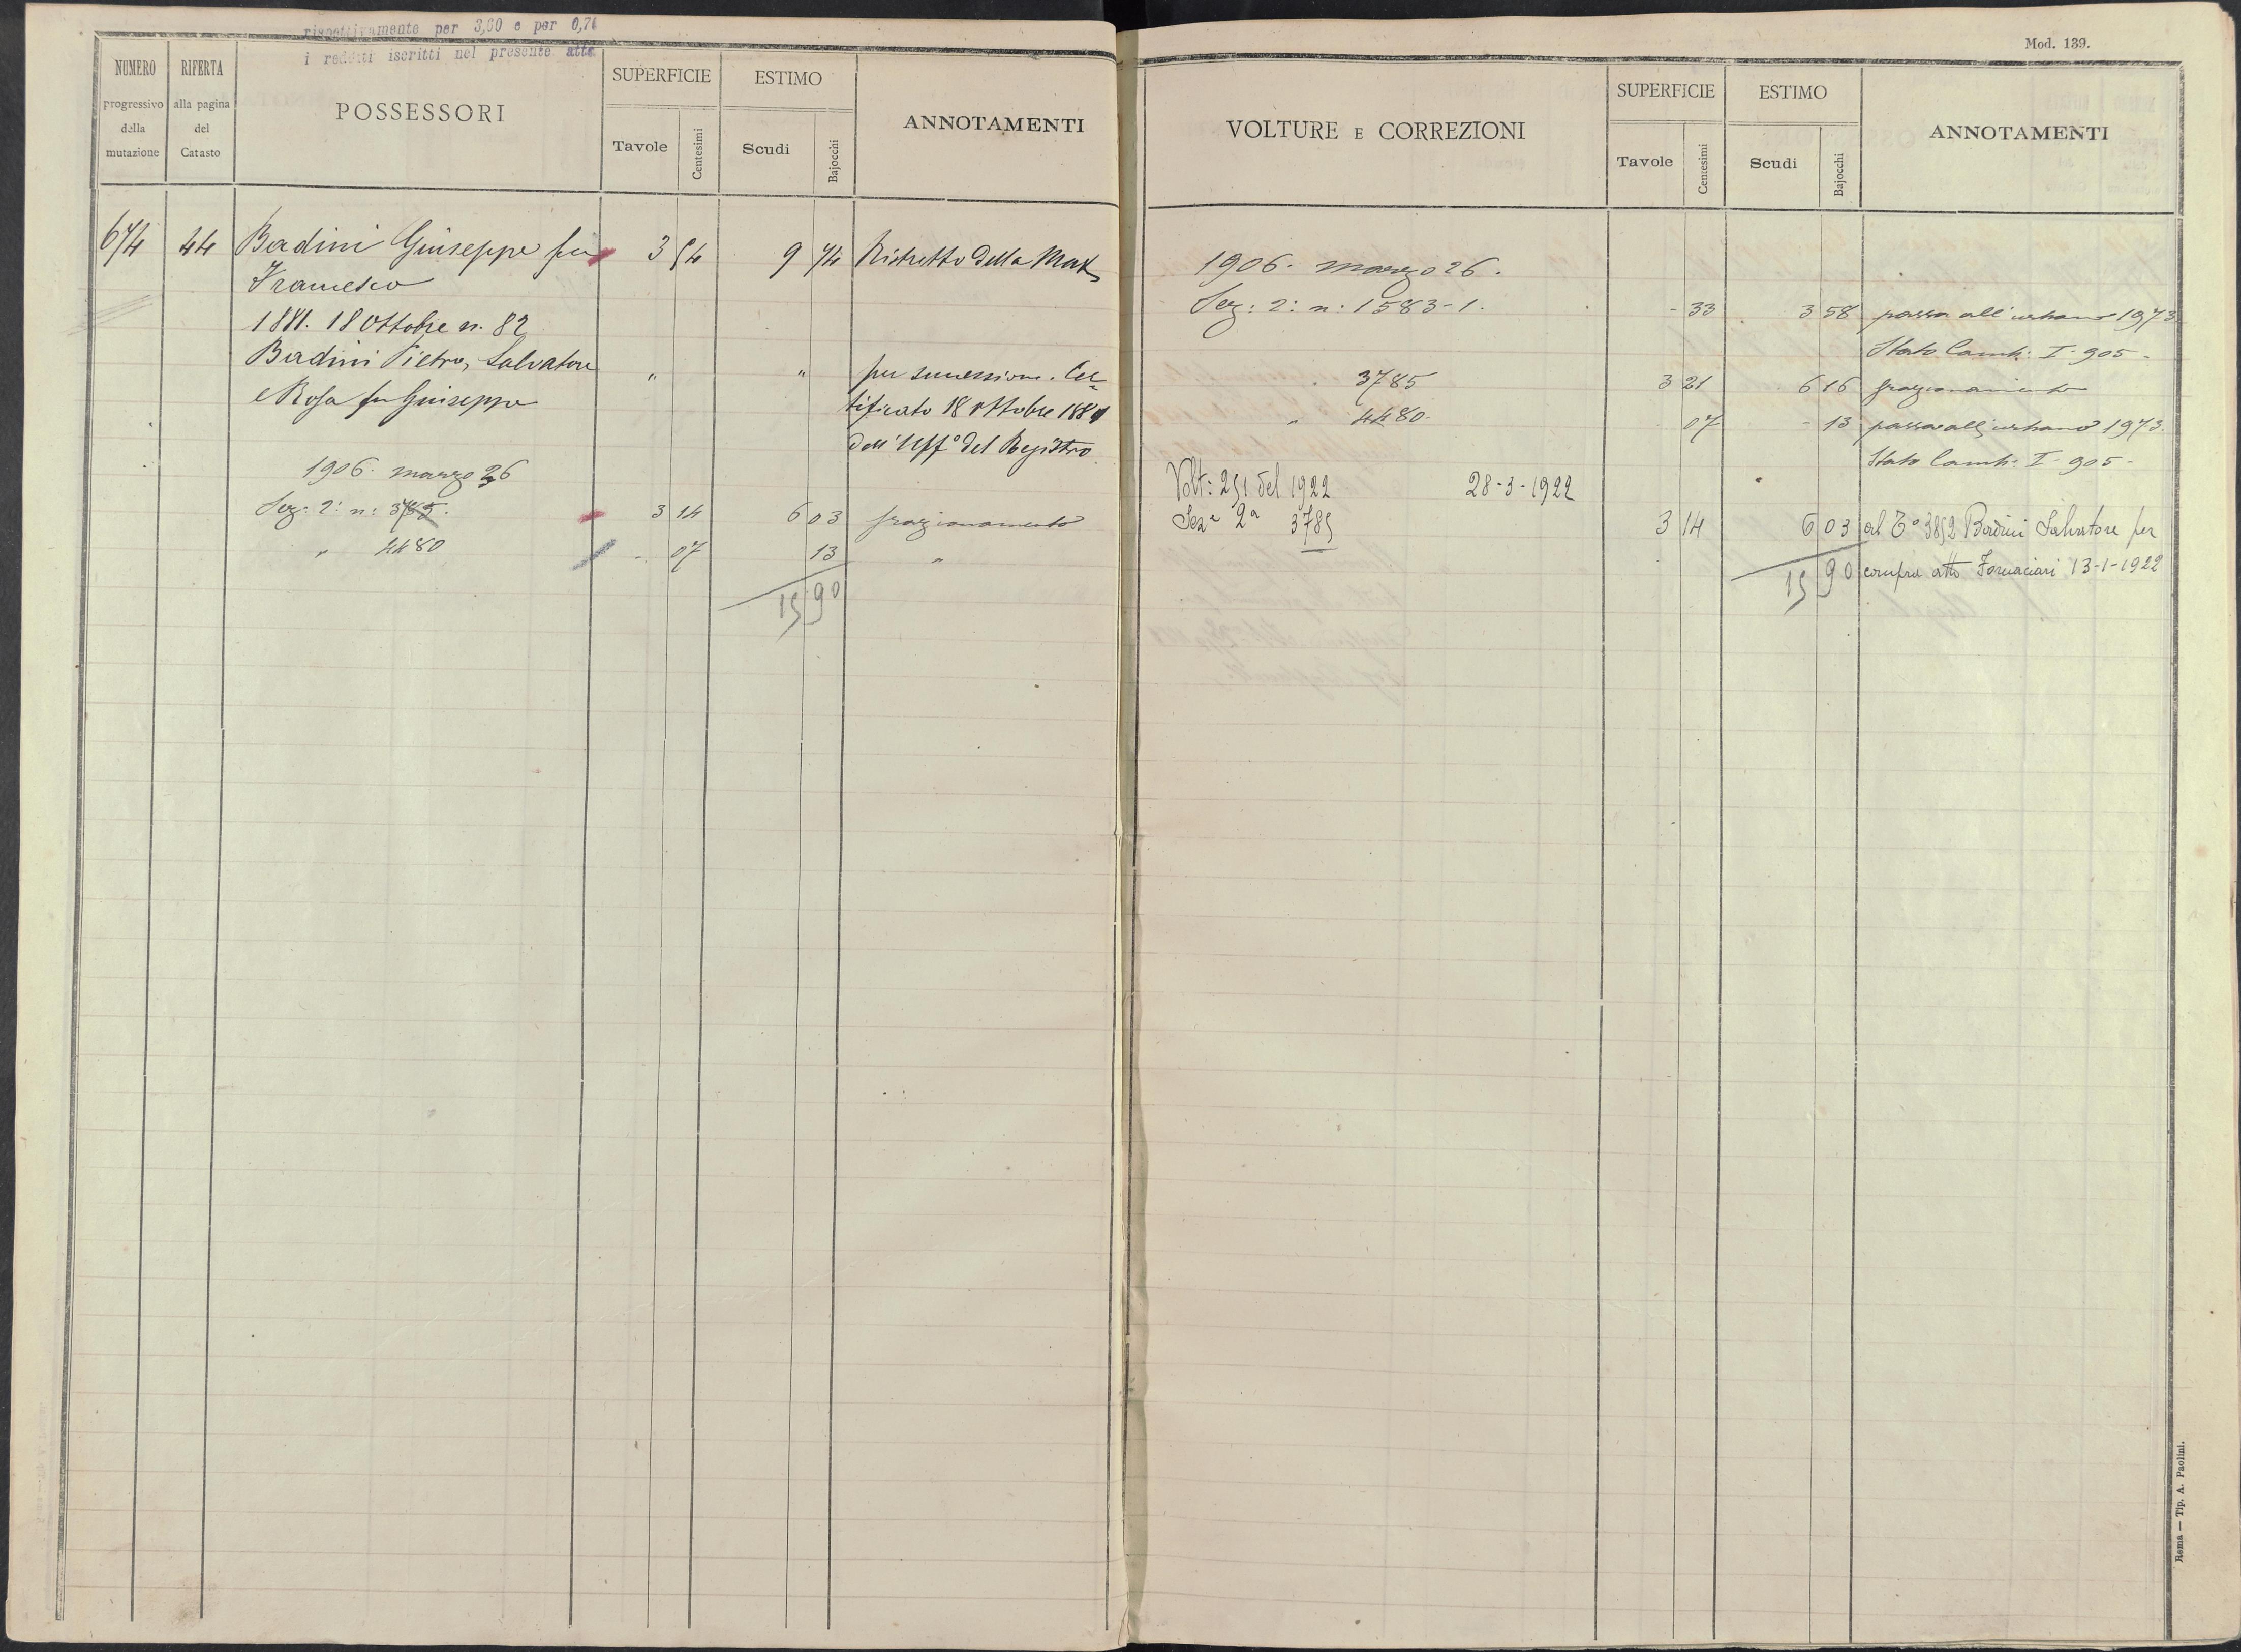 rispettivamente per 3,60 e per 0,74
i redditi iscritti nel presente atto
NUMERO
progressivo
della
mutazione
RIFERTA
alla pagina
del
Catasto
POSSESSORI
SUPERFICIE
Tavole
Centesimi
ESTIMO
Scudi
Bajocchi
ANNOTAMENTI
674 44 Badini Giuseppe fu 3 54 9 74 Ristretto della Mat
Francesco
1881. 18 Ottobre n. 82
Badini Pietro, Salvatore " " per successione. Cer=
e Rosa fu Giuseppe tificato 18 ottobre 1881
dell'Uffo del Registro
1906. marzo 26
Sez: 2: n: 3785. 3 14 6 03 frazionamento
" 4480 - 07 13 "
15 90
Mod. 139.
VOLTURE E CORREZIONI
SUPERFICIE
Tavole
Centesimi
ESTIMO
Scudi
Bajocchi
ANNOTAMENTI
1906. marzo 26.
Sez: 2: n: 1583-1. - 33 3 58 passa all'urbano 1973
Stato Camb: I-905-
" 3785 3 21 6 16 frazionamento
" 4480. 07 - 13 passa all'urbano 1973.
Stato Camb: I-905-
Volt: 251 del 1922 28-3-1922
Seze 2a 3785 3 14 6 03 al To 3852 Badini Salvatore per
15 90 compra atto Fornaciari 13-1-1922
Roma — Tip. A. Paolini.